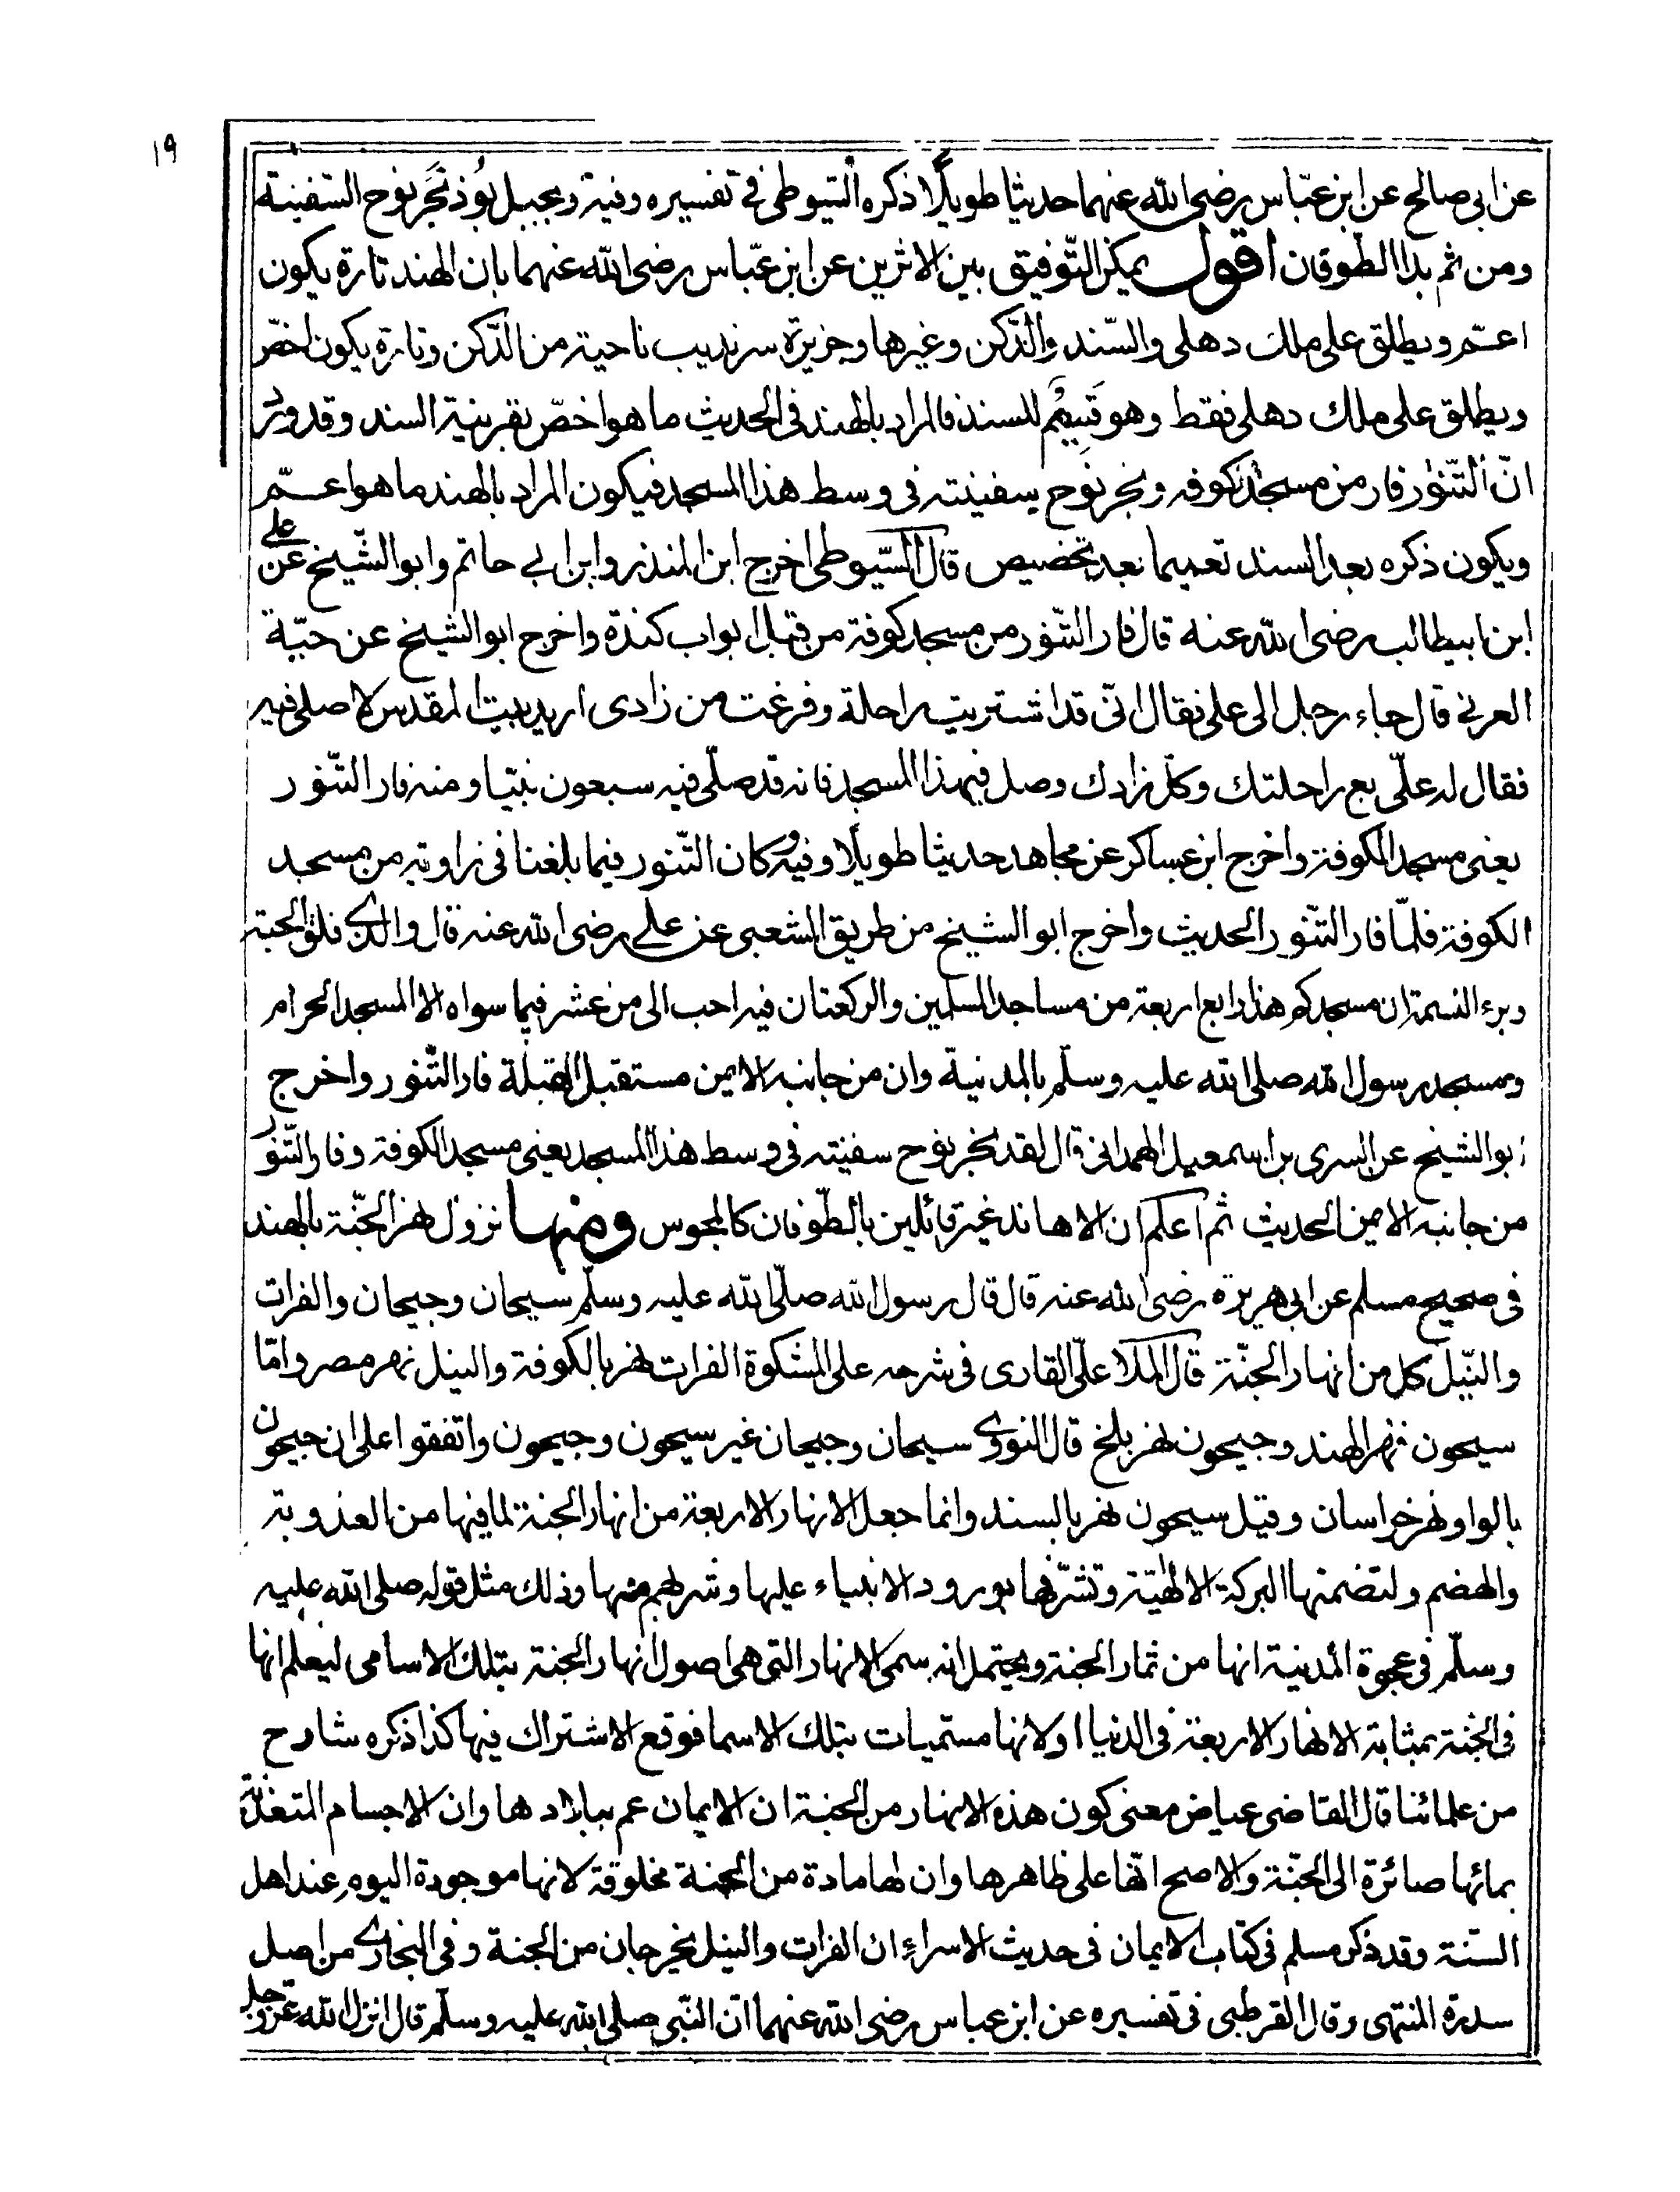 ١٩
عن ابي صالح عن ابن عبّاس رضي الله عنهما حديثا طويلًا ذكره السّيوطي في تفسيره وفيه وبجبل بُوذ نَجَر نوح السّفينة
ومن ثم بدا الطّوفان اقول يمكن التّوفيق بين الاثرين عن ابن عبّاس رضي الله عنهما بان الهند تارة يكون
اعمّ ويطلق على ملك دهلي والسّند والدّكن وغيرها وجزيرة سرنديب ناحية من الدّكن وتارة يكون اخصّ
ويطلق على ملك دهلي فقط وهو قَسِيم للسند فالمراد بالهند في الحديث ما هو اخصّ بقرينة السند وقد ورد
انّ التّنور فار من مسجد كوفه ونجر نوح سفينته في وسط هذا المسجد فيكون المراد بالهند ما هو اعمّ
ويكون ذكره بعد السند تعميما بعد تخصيص قال السّيوطي اخرج ابن المنذر وابن ابي حاتم وابو الشّيخ عن علي
ابن ابيطالب رضي الله عنه قال فار التّنور من مسجد كوفة من قبل ابواب كندة واخرج ابو الشيخ عن حبّة
العرني قال جاء رجل الى علي فقال انّى قد اشتريت راحلة وفرغت من زادى اريد بيت المقدس لاصلى فيه
فقال له علّى بع راحلتك وكل زادك وصل في هذا المسجد فانه قد صلّى فيه سبعون نبيّا ومنه فار التّنور
يعنى مسجد الكوفة واخرج ابن عساكر عن مجاهد حديثا طويلًا وفيه وكان التّنور فيما بلغنا في زاوية من مسجد
الكوفة فلمّا فار التّنور الحديث واخرج ابو الشيخ من طريق الشعبى عن علي رضى الله عنه قال والذي فلق الحبة
وبرء النسمة ان مسجدكم هذا رابع اربعة من مساجد المسلمين والركعتان فيه احب الى من عشر فيما سواه الا المسجد الحرام
ومسجد رسول الله صلى الله عليه وسلّم بالمدينة وان من جانبه الايمن مستقبل القبلة فار التّنور واخرج
ابو الشيخ عن السرى بن اسمعيل الهمدانى قال لقد نجر نوح سفينته في وسط هذا المسجد يعنى مسجد الكوفة وفار التّنور
من جانبه الايمن الحديث ثم اعلم ان الاهاند غير قائلين بالطّوفان كالمجوس ومنها نزول نهر الجنّة بالهند
فى صحيح مسلم عن ابى هريرة رضى الله عنه قال قال رسول الله صلّى الله عليه وسلّم سيحان وجيحان والفرات
والنّيل كل من انهار الجنّة قال الملا علّى القارى فى شرحه على المشكوة الفرات نهر بالكوفة والنيل نهر مصر وامّا
سيحون نهر الهند وجيحون نهر بلخ قال النووي سيحان وجيحان غير سيحون وجيحون واتفقوا على ان جيحون
بالواو نهر خراسان وقيل سيحون نهر بالسند وانما جعل الانهار الاربعة من انهار الجنة لما فيها من العذوبة
والهضم ولتضمنها البركة الالهيّة وتشرّفها بورود الانبياء عليها وشربهم منها وذلك مثل قوله صلى الله عليه
وسلّم فى عجوة المدينة انها من ثمار الجنة ويحتمل انه سمى الانهار التى هى اصول انهار الجنة بتلك الاسامى ليعلم انها
فى الجنة بمثابة الانهار الاربعة فى الدنيا او لانها مسمّيات بتلك الاسما فوقع الاشتراك فيها كذا ذكره شارح
من علمائنا قال القاضى عياض معنى كون هذه الانهار من الجنة ان الايمان عم ببلادها وان الاجسام المتغذّية
بمائها صائرة الى الجنّة والاصح انّها على ظاهرها وان لها مادة من الجنة مخلوقة لانها موجودة اليوم عند اهل
السّنة وقد ذكر مسلم فى كتاب الايمان فى حديث الاسراء ان الفرات والنيل يخرجان من الجنة وفى البخاري من اصل
سدرة المنتهى وقال القرطبى فى تفسيره عن ابن عباس رضى الله عنهما انّ النّبى صلى الله عليه وسلّم قال انزل الله عزّوجل